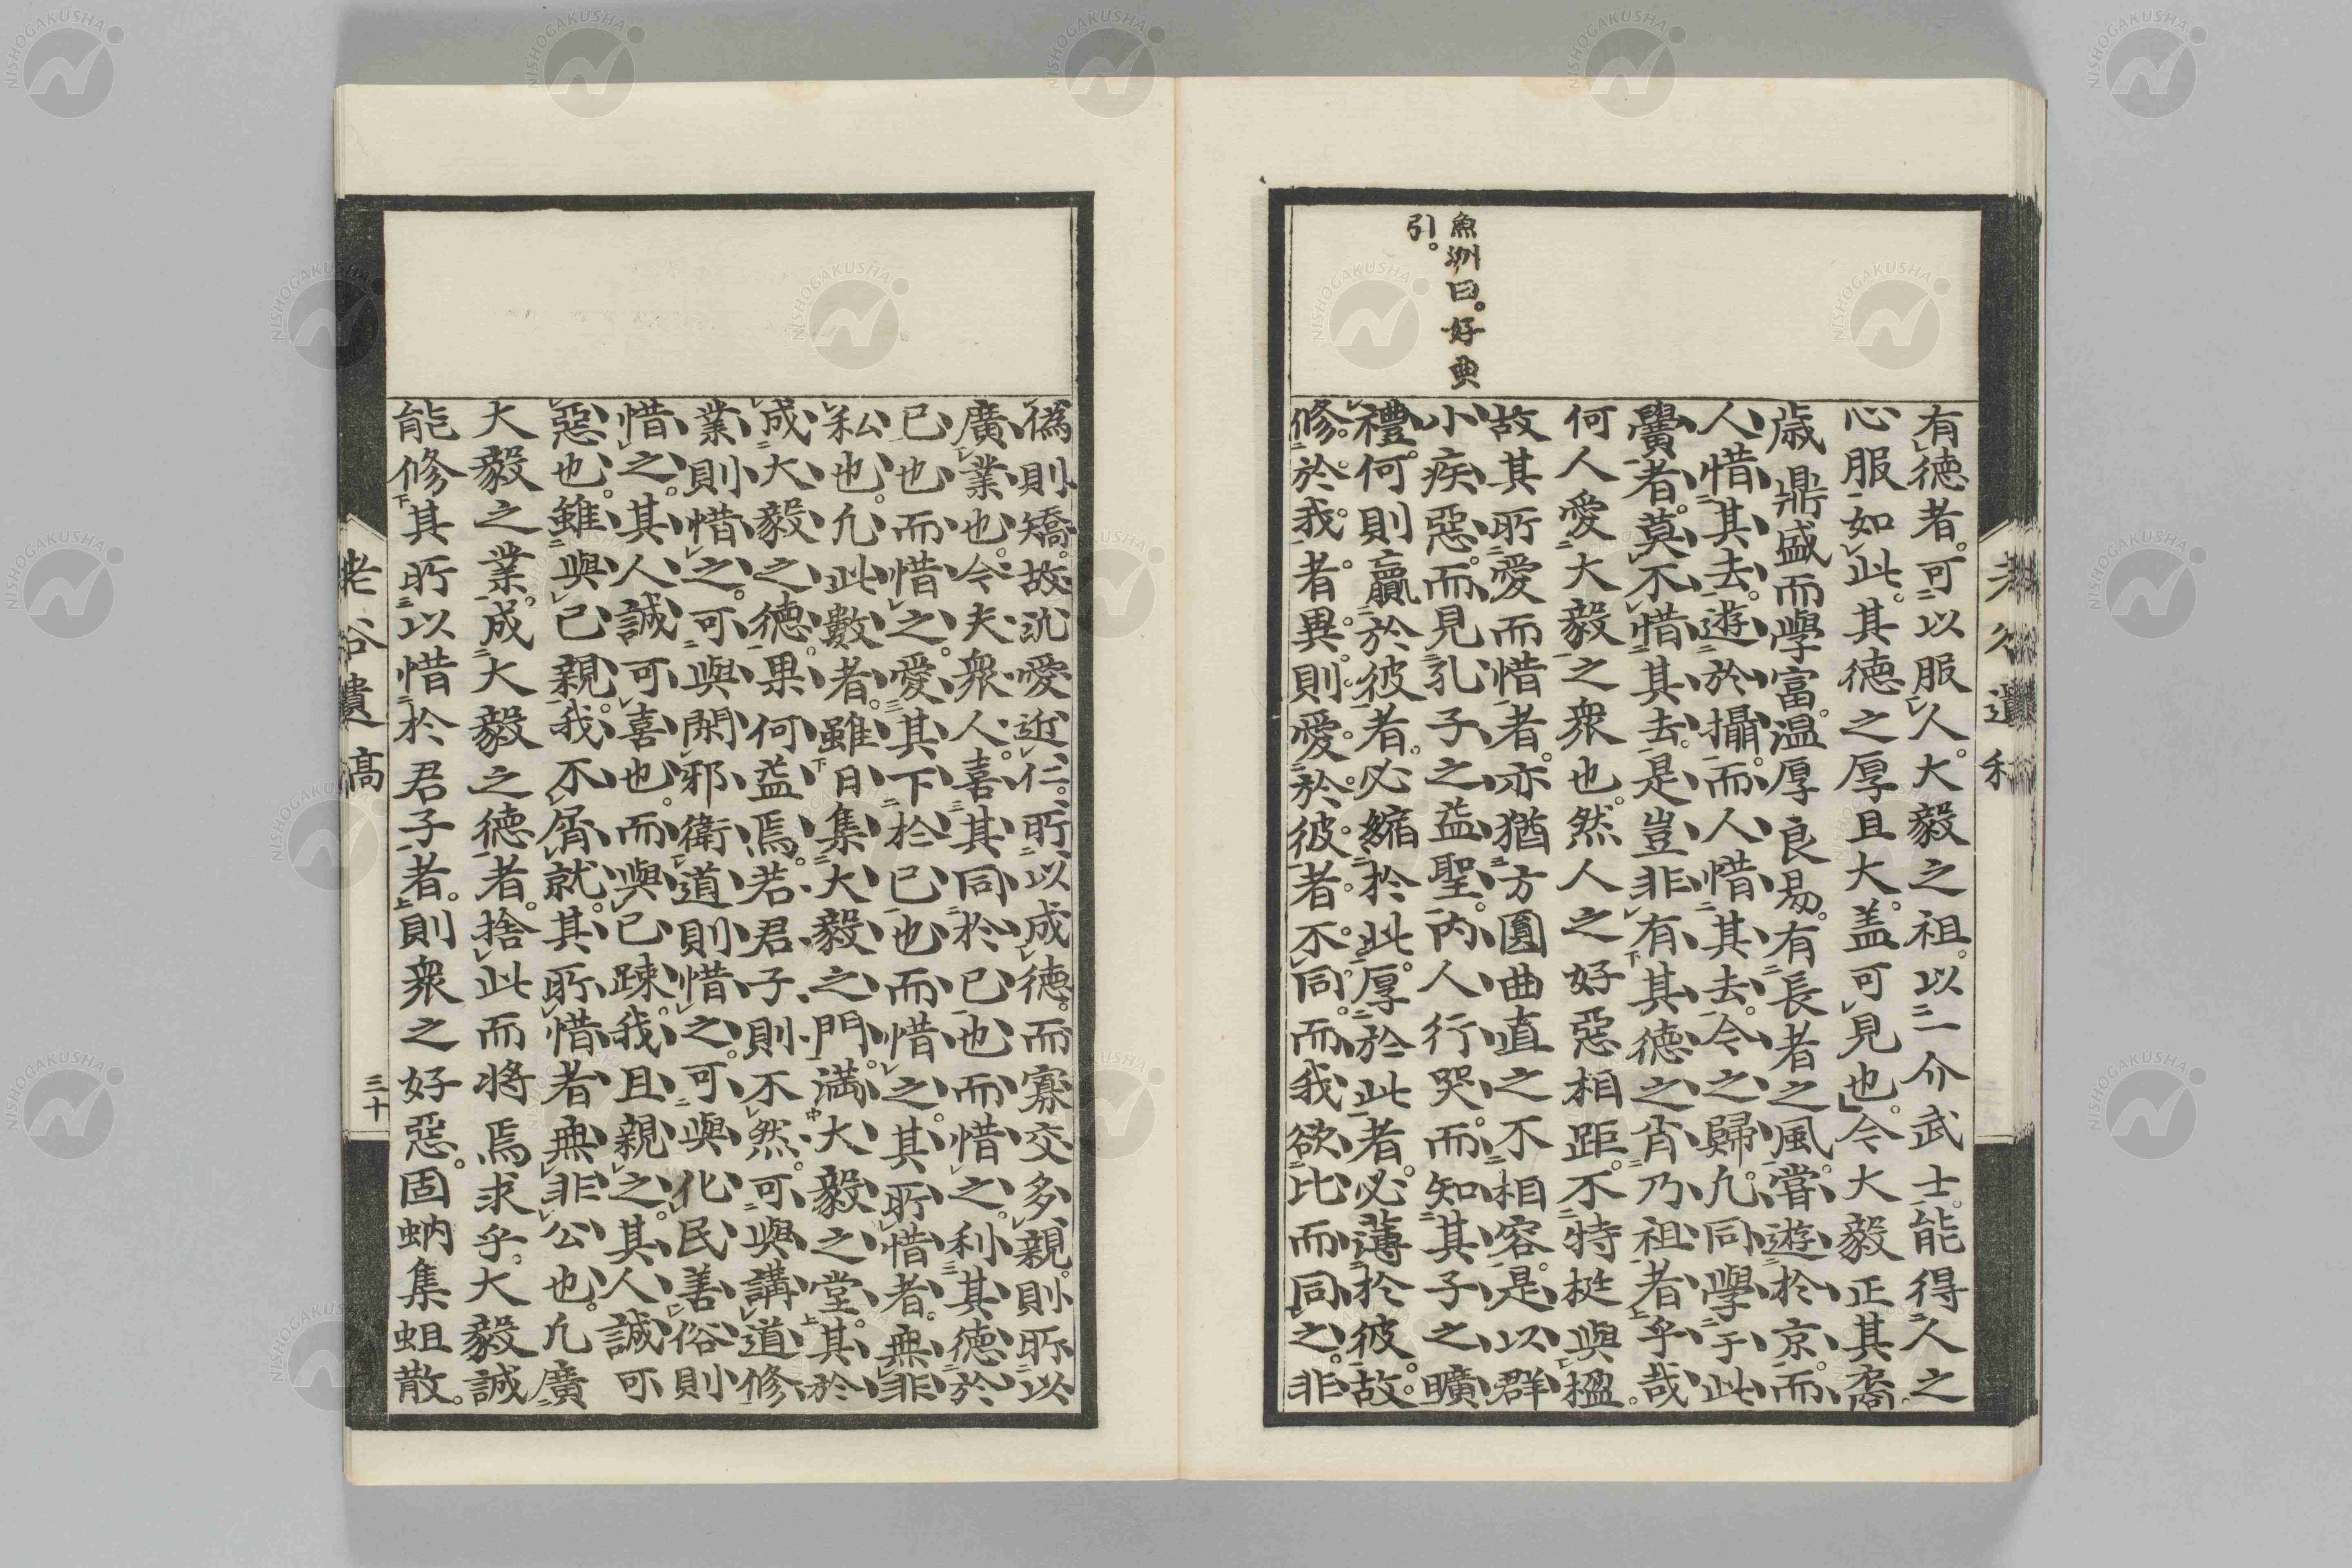 魚洲曰。好典
引。
有德者。可以服人。大毅之祖。以一介武士。能得人之
心服如此。其德之厚且大。盖可見也。今大毅正其裔。
歲鼎盛而學富。温厚良易。有長者之風。嘗遊於京。而
人惜其去。遊於攝。而人惜其去。今之歸。凢同學于此
黌者。莫不惜其去。是豈非有其德之肖乃祖者乎哉
何人愛大毅之衆也。然人之好惡相距。不特梃與楹。
故其所愛而惜者。亦猶方圓曲直之不相容。是以群
小疾惡。而見孔子之益聖。丙人行哭。而知其子之曠
禮。何則贏於彼者。必縮於此。厚於此者。必薄於彼。故
修於我者異。則愛於彼者。不同。而我欲比而同之。非
偽則矯。故汎愛近仁。所以成德。而寡交多親。則所以
廣業也。今夫衆人。喜其同於已也而惜之。利其德於
已也而惜之。愛其下於已也而惜之。其所惜者。無非
私也。凢此數者。雖日集大毅之門。滿大毅之堂。其於
成大毅之德。果何益焉。若君子則不然。可與講道修
業則惜之。可與閑邪衛道則惜之。可與化民善俗則
惜之。其人誠可喜也。而與已踈。我且親之。其人誠可
惡也。雖與已親。我不屑就。其所惜者無非公也。凢廣
大毅之業。成大毅之德者。捨此而将焉求乎。大毅誠
能修其所以惜於君子者。則衆之好惡。固蚋集蛆散。
老谷遺稿
三十